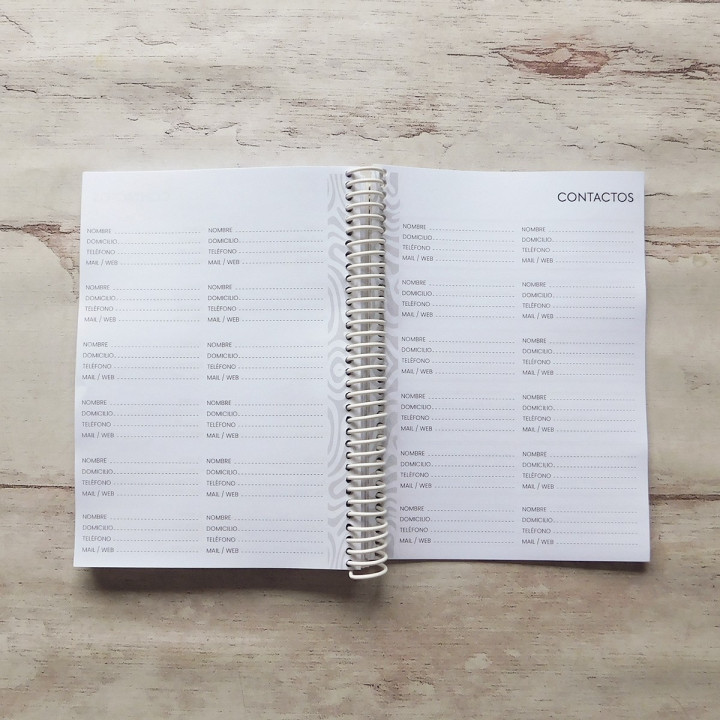 NOMBRE
DOMICILIO
TELÉFONO
MAIL / WEB
NOMBRE
DOMICILIO
TELÉFONO
MAIL / WEB
NOMBRE
DOMICILIO
TELÉFONO
MAIL / WEB
NOMBRE
DOMICILIO
TELÉFONO
MAIL / WEB
NOMBRE
DOMICILIO
TELÉFONO
MAIL / WEB
NOMBRE
DOMICILIO
TELÉFONO
MAIL / WEB
NOMBRE
DOMICILIO
TELÉFONO
MAIL / WEB
NOMBRE
DOMICILIO
TELÉFONO
MAIL / WEB
NOMBRE
DOMICILIO
TELÉFONO
MAIL / WEB
NOMBRE
DOMICILIO
TELÉFONO
MAIL / WEB
NOMBRE
DOMICILIO
TELÉFONO
MAIL / WEB
NOMBRE
DOMICILIO
TELÉFONO
MAIL / WEB
CONTACTOS
NOMBRE
DOMICILIO
TELÉFONO
MAIL / WEB
NOMBRE
DOMICILIO
TELÉFONO
MAIL / WEB
NOMBRE
DOMICILIO
TELÉFONO
MAIL / WEB
NOMBRE
DOMICILIO
TELÉFONO
MAIL / WEB
NOMBRE
DOMICILIO
TELÉFONO
MAIL / WEB
NOMBRE
DOMICILIO
TELÉFONO
MAIL / WEB
NOMBRE
DOMICILIO
TELÉFONO
MAIL / WEB
NOMBRE
DOMICILIO
TELÉFONO
MAIL / WEB
NOMBRE
DOMICILIO
TELÉFONO
MAIL / WEB
NOMBRE
DOMICILIO
TELÉFONO
MAIL / WEB
NOMBRE
DOMICILIO
TELÉFONO
MAIL / WEB
NOMBRE
DOMICILIO
TELÉFONO
MAIL / WEB